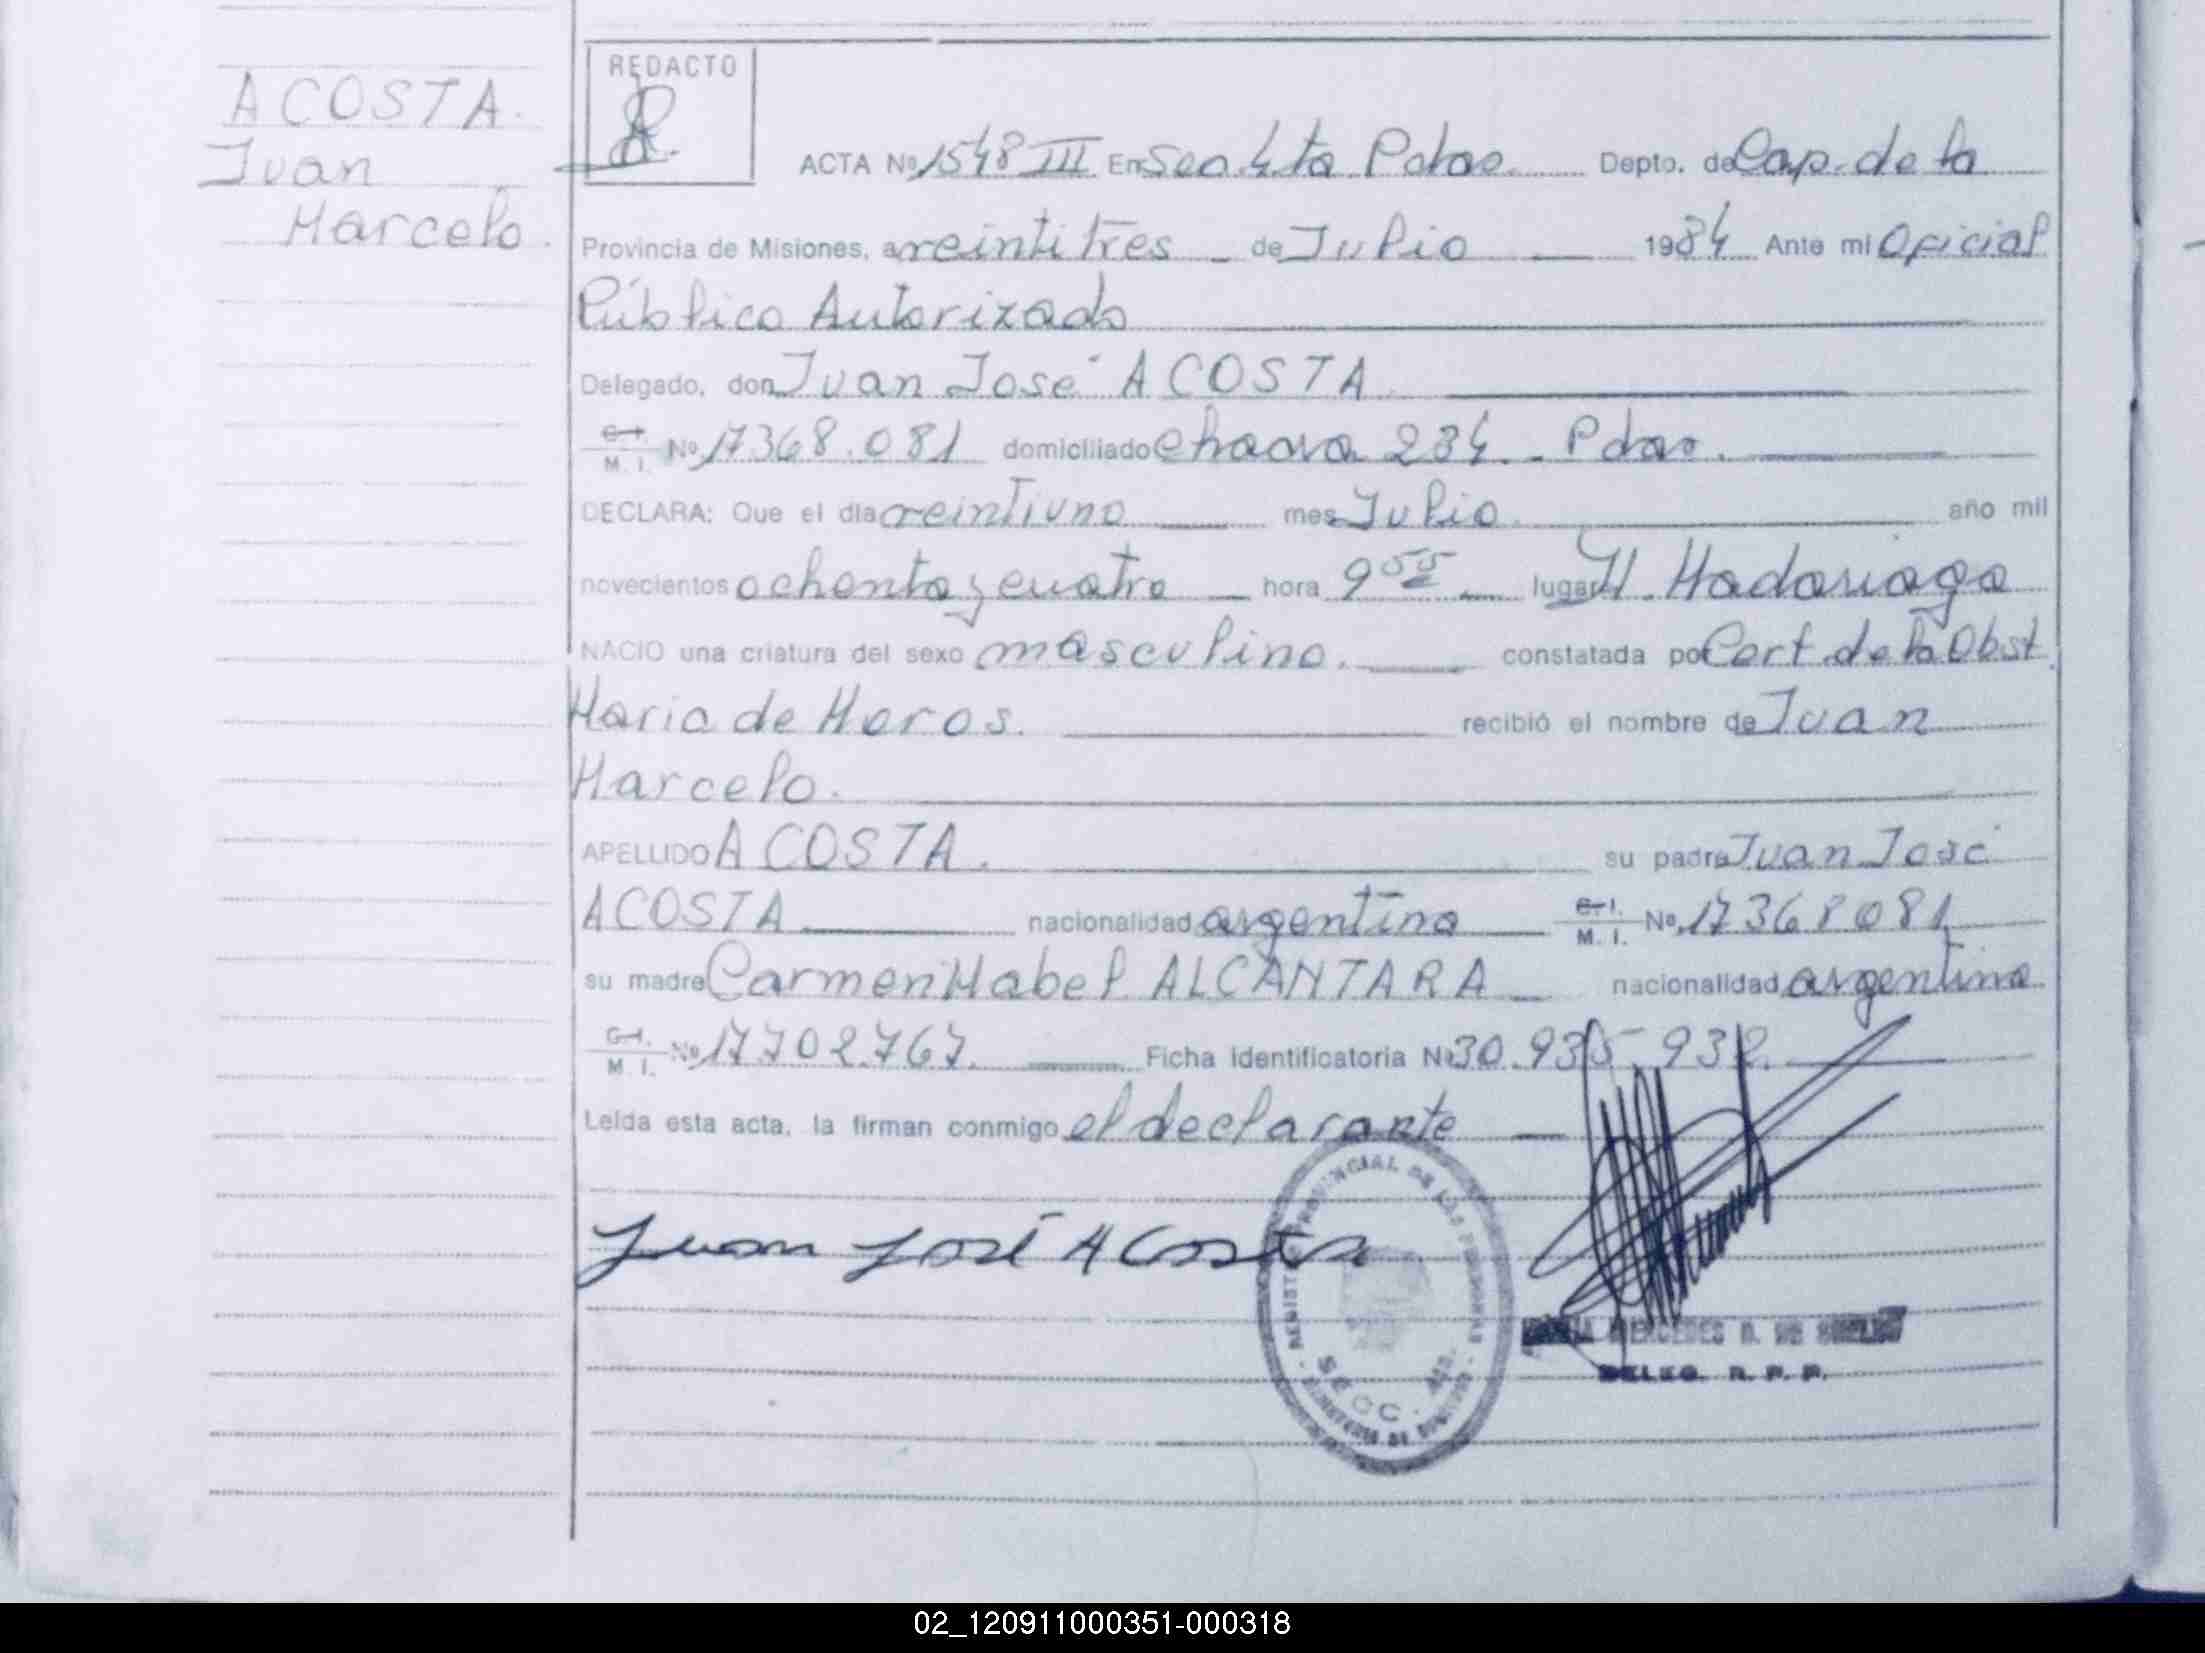 ACOSTA.
Juan
Marcelo.
REDACTO
ACTA Nº 1548 III En Sec. 4ta Pdas. Depto. de Cap. de la
Provincia de Misiones, a veintitres de Julio 1984 Ante mi Oficial
Público Autorizado
Delegado, don Juan José ACOSTA
C. I. M. I. Nº 17368.081 domiciliado chacra 234. Pdas.
DECLARA: Que el día veintiuno mes Julio. año mil
novecientos ochenta y cuatro hora 9 55 lugar H. Madariaga
NACIO una criatura del sexo masculino. constatada por Cert. de la Obst.
Maria de Moros. recibió el nombre de Juan
Marcelo.
APELLIDO ACOSTA. su padre Juan José
ACOSTA nacionalidad argentina C. I. M. I. Nº 17368081
su madre Carmen Mabel ALCANTARA nacionalidad argentina.
C. I. M. I. Nº 17702767. Ficha identificatoria Nº 30.935.932.
Leída esta acta, la firman conmigo el declarante
Juan José Acosta
PROVINCIAL DE LAS PERSONAS
SECC. 4ta.
MERCEDES
DELEG. R. P. P.
02_120911000351-000318